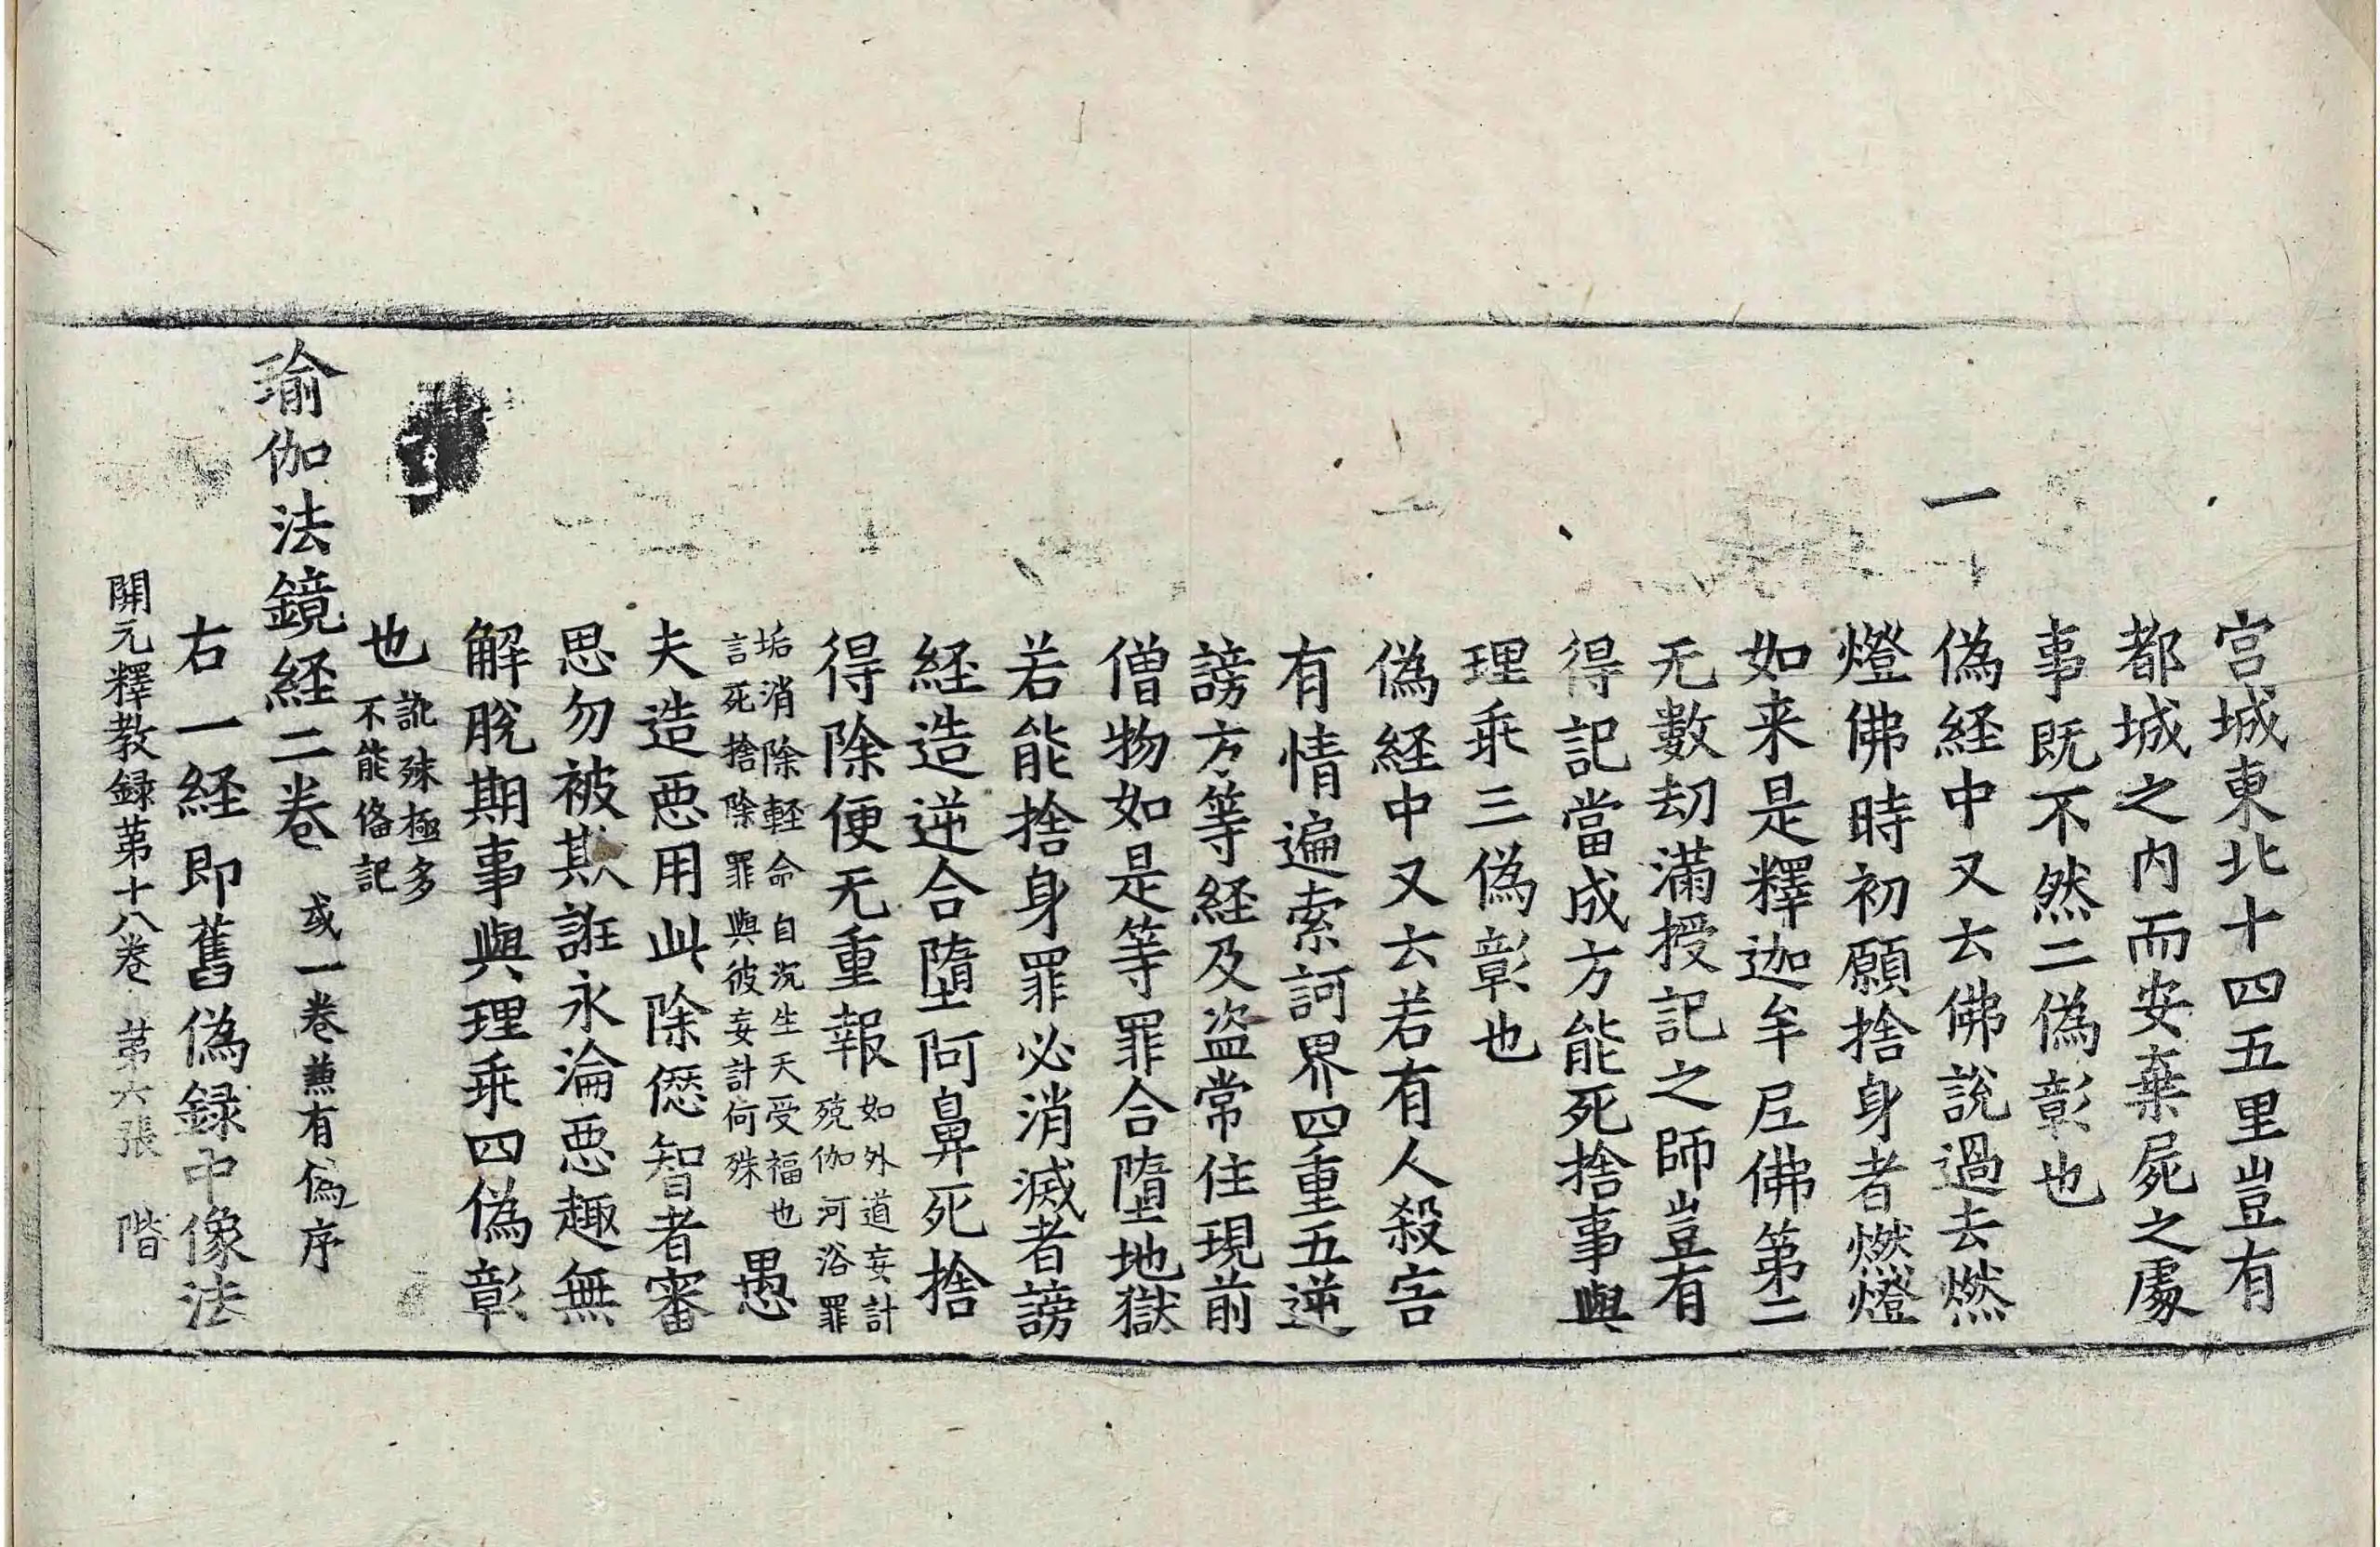 宫城東北十四五里豈有
都城之内而安棄屍之處
事既不然二僞彰也
一
僞経中又云佛說過去燃
燈佛時初願捨身者燃燈
如来是釋迦牟尼佛第二
无數劫滿授記之師豈有
得記當成方能死捨事與
理乖三僞彰也
僞経中又云若有人殺害
有情遍索訶界四重五逆
謗方等経及盗常住現前
僧物如是等罪合墮地獄
若能捨身罪必消滅者謗
経造逆合墮阿鼻死捨
得除便无重報如外道妄計殑伽河浴罪
垢消除輕命自沉生天受福也言死捨除罪與彼妄計何殊愚
夫造惡用此除愆智者審
思勿被欺誑永淪惡趣無
解脫期事與理乖四僞彰
也訛殊極多不能俻記
瑜伽法鏡経二卷 或一卷兼有僞序
右一経即舊僞録中像法
開元釋教録苐十八卷 苐六張 階